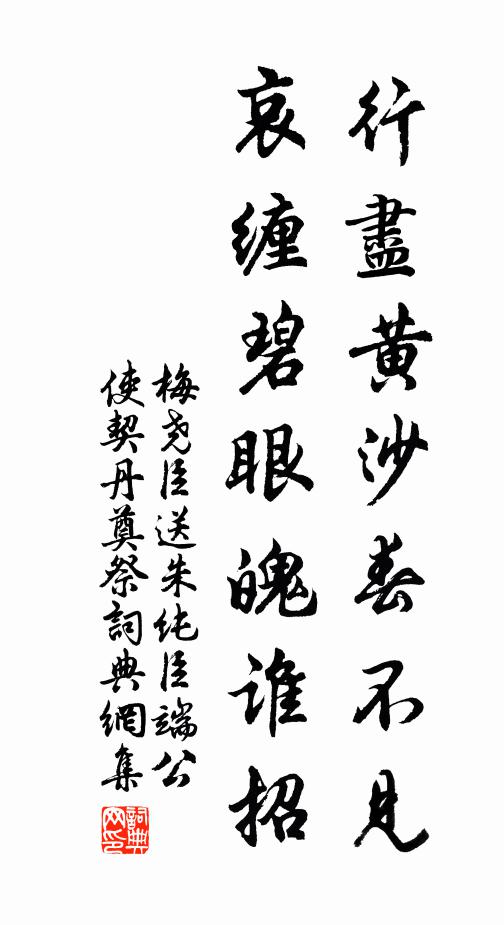 行盡黄沙春不見
哀纏碧眼魄谁招
梅尧臣送朱純臣端公
使契丹奠祭詞典網集
詞典
网印